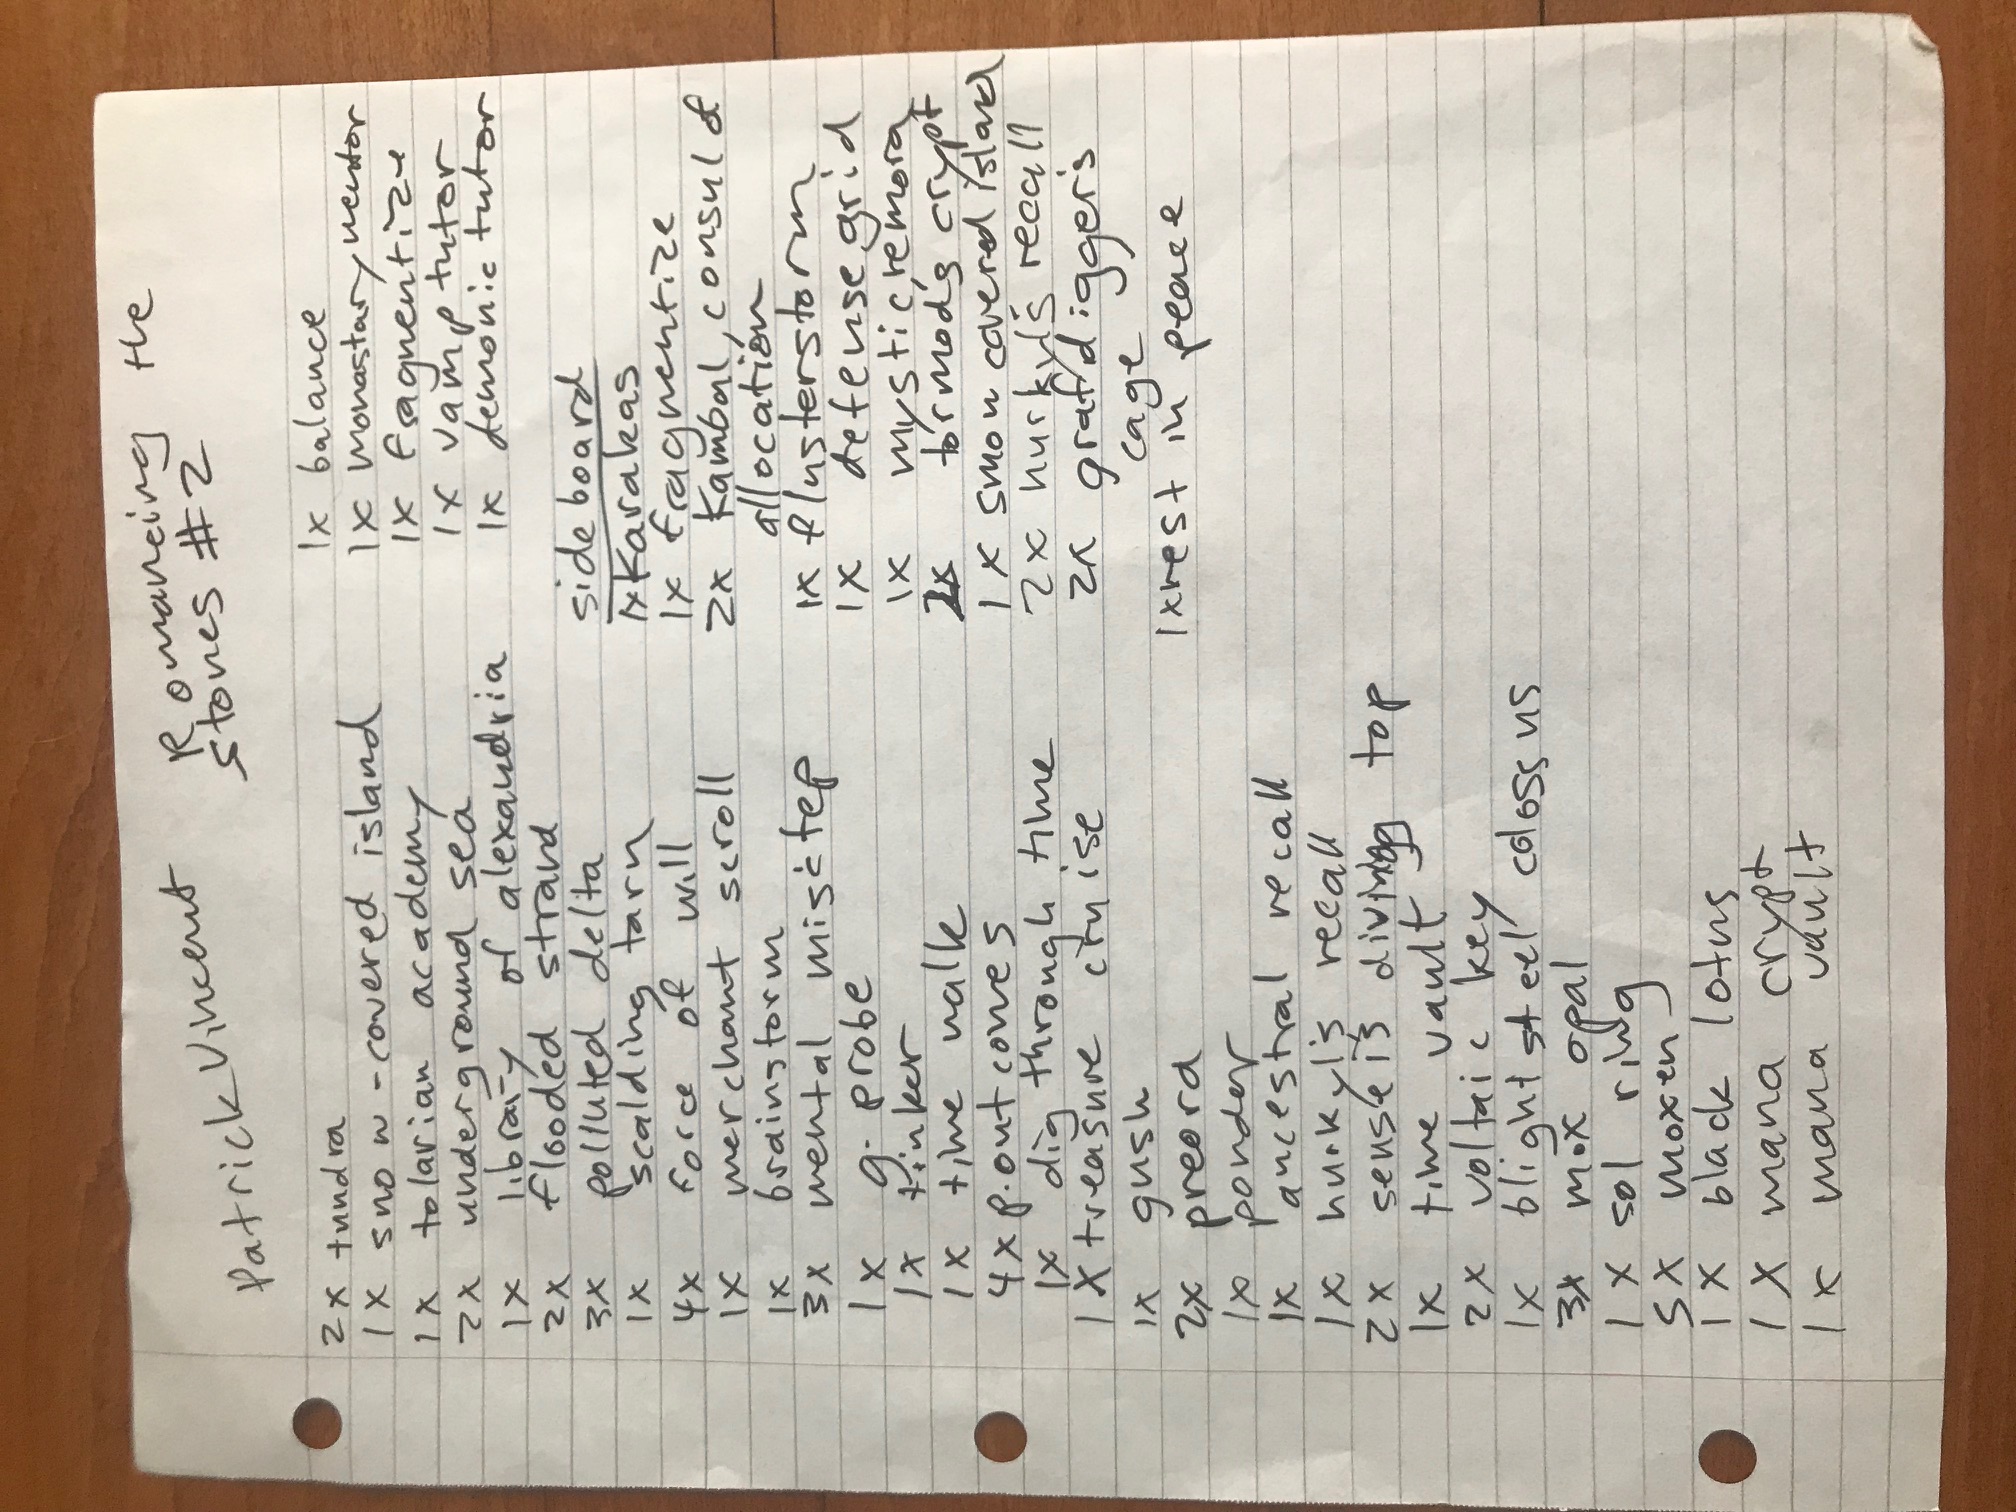 Patrick Vincent
Romancing the
stones #2
2x tundra
1x snow-covered island
1x tolarian academy
2x underground sea
1x library of alexandria
2x flooded strand
3x polluted delta
1x scalding tarn
4x force of will
1x merchant scroll
1x brainstorm
3x mental misstep
1x g. probe
1x tinker
1x time walk
4x p. outcomes
1x dig through time
1x treasure cruise
1x gush
2x preord
1x ponder
1x ancestral recall
1x hurkyl's recall
2x sensei's divining top
1x time vault
2x voltaic key
1x blightsteel colossus
3x mox opal
1x sol ring
5x moxen
1x black lotus
1x mana crypt
1x mana vault
1x balance
1x monastary mentor
1x fragmentize
1x vamp tutor
1x demonic tutor
sideboard
1x Karakas
1x fragmentize
2x Kambal, consul of
allocation
1x flusterstorm
1x defense grid
1x mystic remora
tormod's crypt
1x snow covered island
2x hurkyl's recall
2x grafdigger's
cage
1x rest in peace